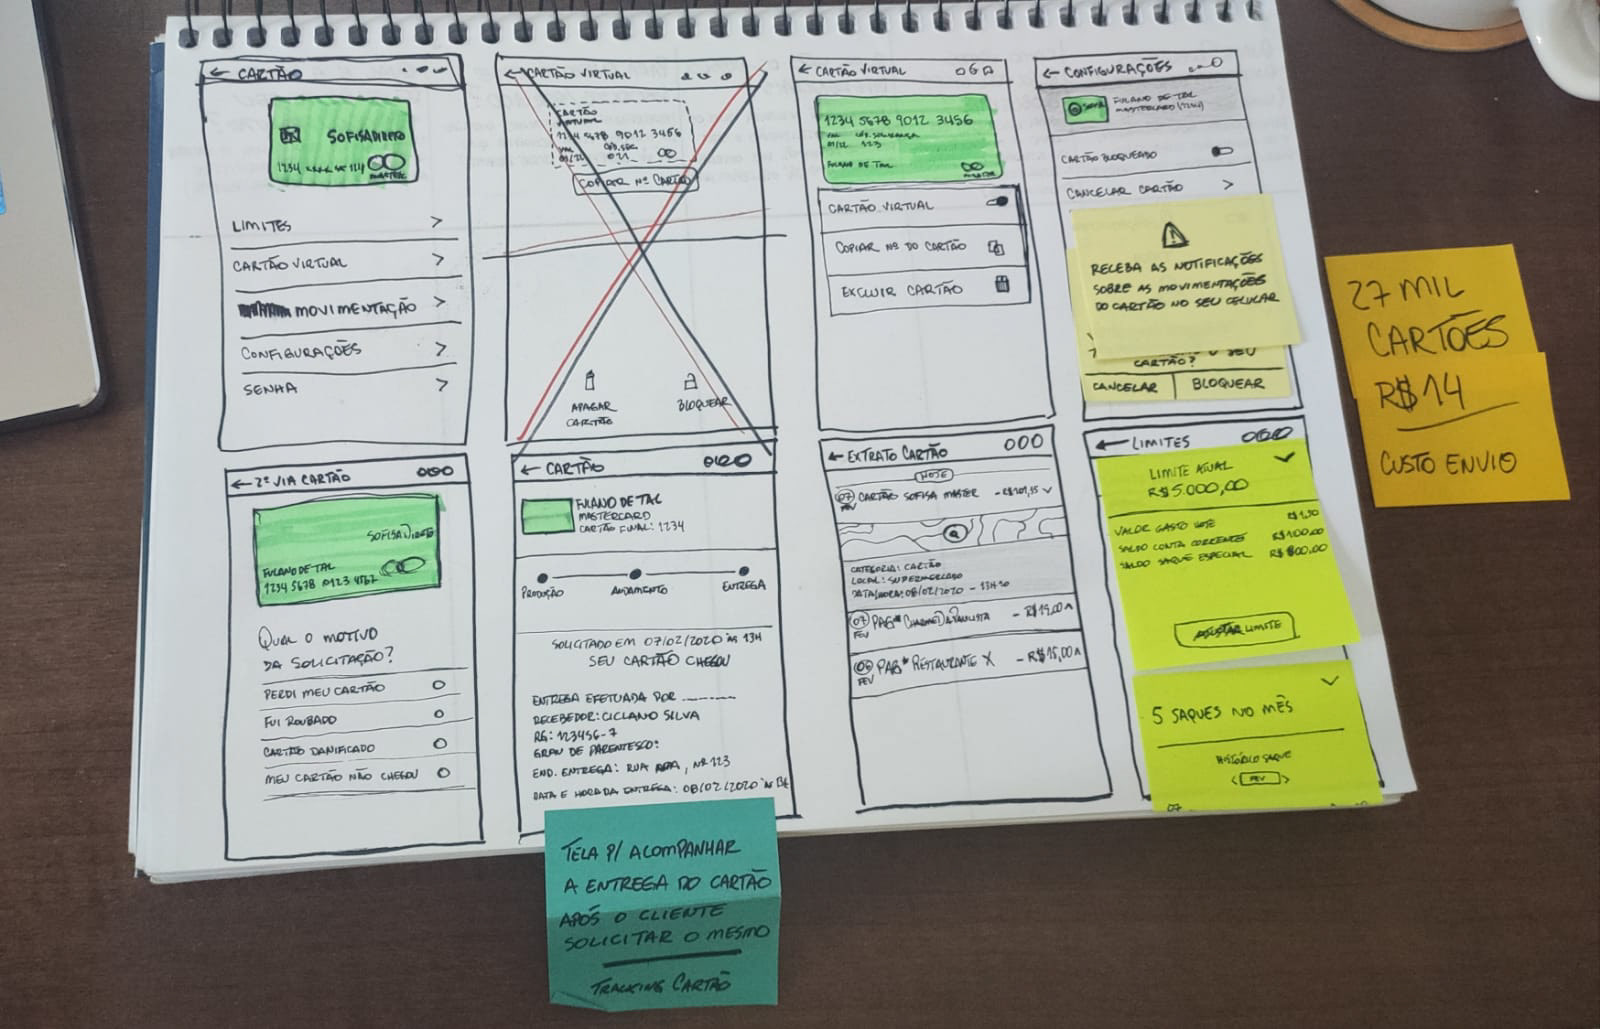 ← CARTÃO
SOFISA DIRETO
LIMITES >
CARTÃO VIRTUAL >
MOVIMENTAÇÃO >
CONFIGURAÇÕES >
SENHA >
← CARTÃO VIRTUAL
CARTÃO
VIRTUAL
1234 5678 9012 3456
COPIAR Nº CARTÃO
APAGAR
CARTÃO
BLOQUEAR
← CARTÃO VIRTUAL
1234 5678 9012 3456
123
FULANO DE TAL
CARTÃO VIRTUAL
COPIAR Nº DO CARTÃO
EXCLUIR CARTÃO
← CONFIGURAÇÕES
FULANO DE TAL
MASTERCARD (1234)
CARTÃO BLOQUEADO
CANCELAR CARTÃO >
RECEBA AS NOTIFICAÇÕES
SOBRE AS MOVIMENTAÇÕES
DO CARTÃO NO SEU CELULAR
O SEU
CARTÃO?
CANCELAR BLOQUEAR
27 MIL
CARTÕES
R$14
CUSTO ENVIO
← 2ª VIA CARTÃO
SOFISA DIRETO
FULANO DE TAL
1234 5678 0123 4567
QUAL O MOTIVO
DA SOLICITAÇÃO?
PERDI MEU CARTÃO
FUI ROUBADO
CARTÃO DANIFICADO
MEU CARTÃO NÃO CHEGOU
← CARTÃO
FULANO DE TAL
MASTERCARD
CARTÃO FINAL: 1234
PRODUÇÃO ANDAMENTO ENTREGA
SOLICITADO EM 07/02/2020 ÀS 13H
SEU CARTÃO CHEGOU
ENTREGA EFETUADA POR
RECEBEDOR: CICLANO SILVA
RG: 123456-7
GRAU DE PARENTESCO:
END. ENTREGA: RUA , Nº 123
DATA E HORA DA ENTREGA: 08/02/2020 ÀS
TELA P/ ACOMPANHAR
A ENTREGA DO CARTÃO
APÓS O CLIENTE
SOLICITAR O MESMO
TRACKING CARTÃO
← EXTRATO CARTÃO
HOJE
07 CARTÃO SOFISA MASTER
FEV
CATEGORIA: CARTÃO
LOCAL: SUPERMERCADO
DATA/HORA: 08/02/2020 -
07 PAG* PAULISTA - R$19,00
FEV
PAG* RESTAURANTE X - R$15,00
FEV
← LIMITES
LIMITE ATUAL
R$5.000,00
VALOR GASTO HOJE
SALDO CONTA CORRENTE
SALDO SAQUE ESPECIAL
AJUSTAR LIMITE
5 SAQUES NO MÊS
HISTÓRICO SAQUE
< FEV >
07